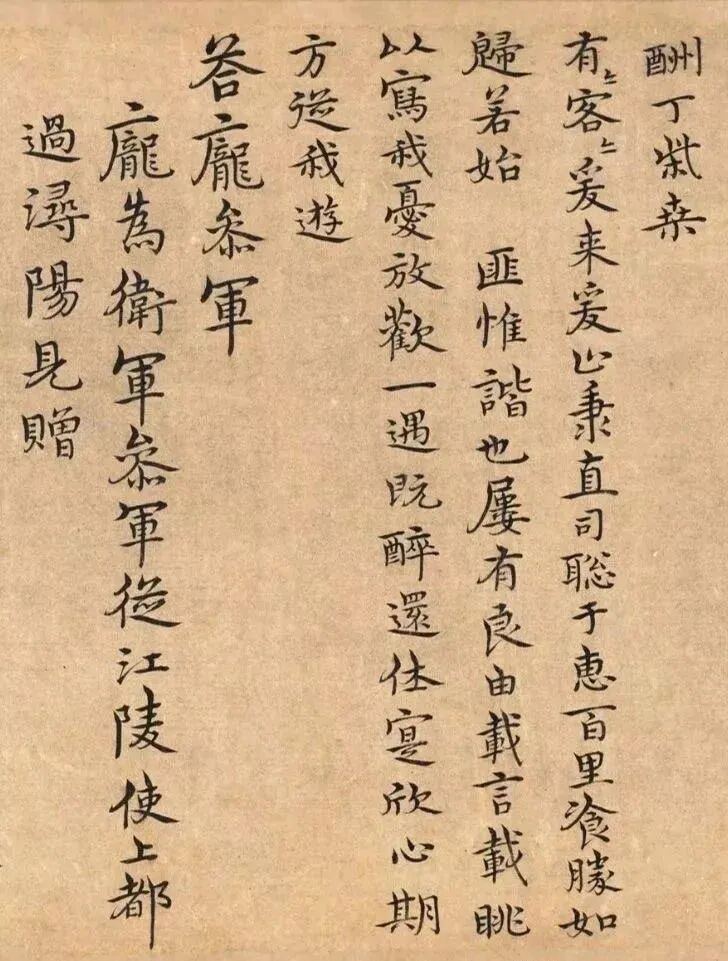 酬丁柴桒
有〻客〻爰来爰止秉直司聡于惠百里飡勝如
歸若始　匪惟諧也屢有良由載言載眺
以寫我憂放歡一遇既醉還休寔欣心期
方從我遊
荅龐叅軍
龐為衛軍叅軍從江陵使上都
過潯陽見贈